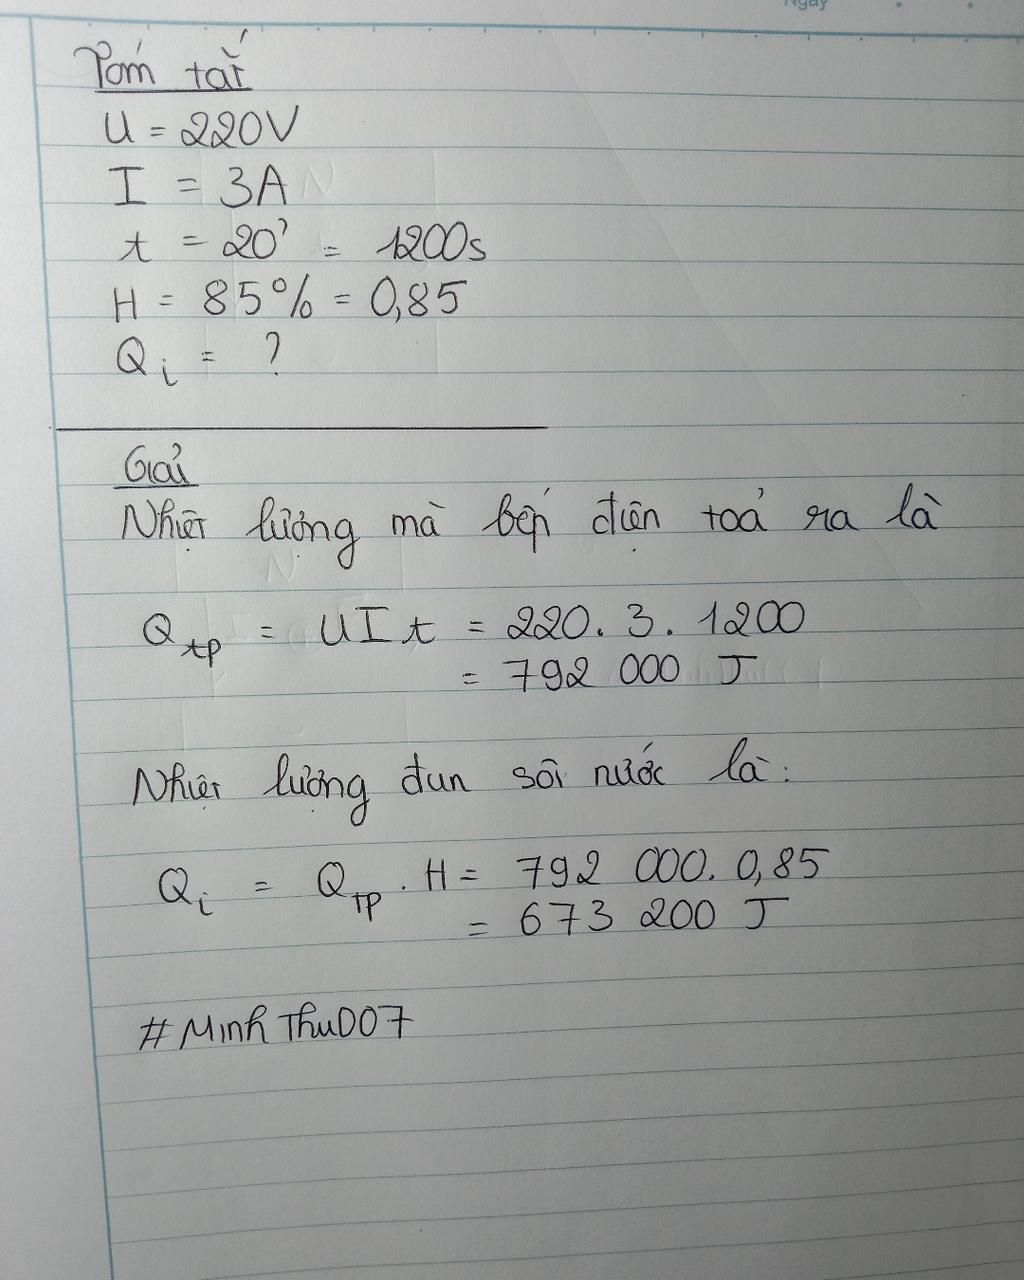 Ngày
Tóm tắt
U = 220V
I = 3A
t = 20' = 1200s
H = 85% = 0,85
Qi = ?
Giải
Nhiệt lượng mà bếp điện toả ra là
Qtp = UIt = 220. 3. 1200
= 792 000 J
Nhiệt lượng đun sôi nước là:
Qi = QTP . H = 792 000. 0,85
= 673 200 J
#MinhThu007